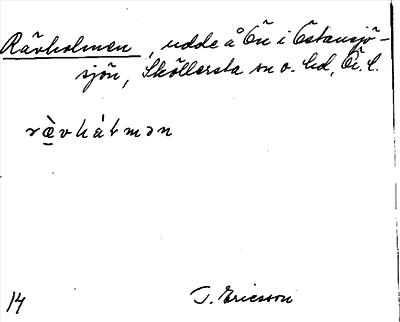 Rävholmen, udde å Ön i Östansjö-
sjön, Sköllersta sn o. hd, Ör. l.
ræ̀vhátmən
14 T. Ericsson